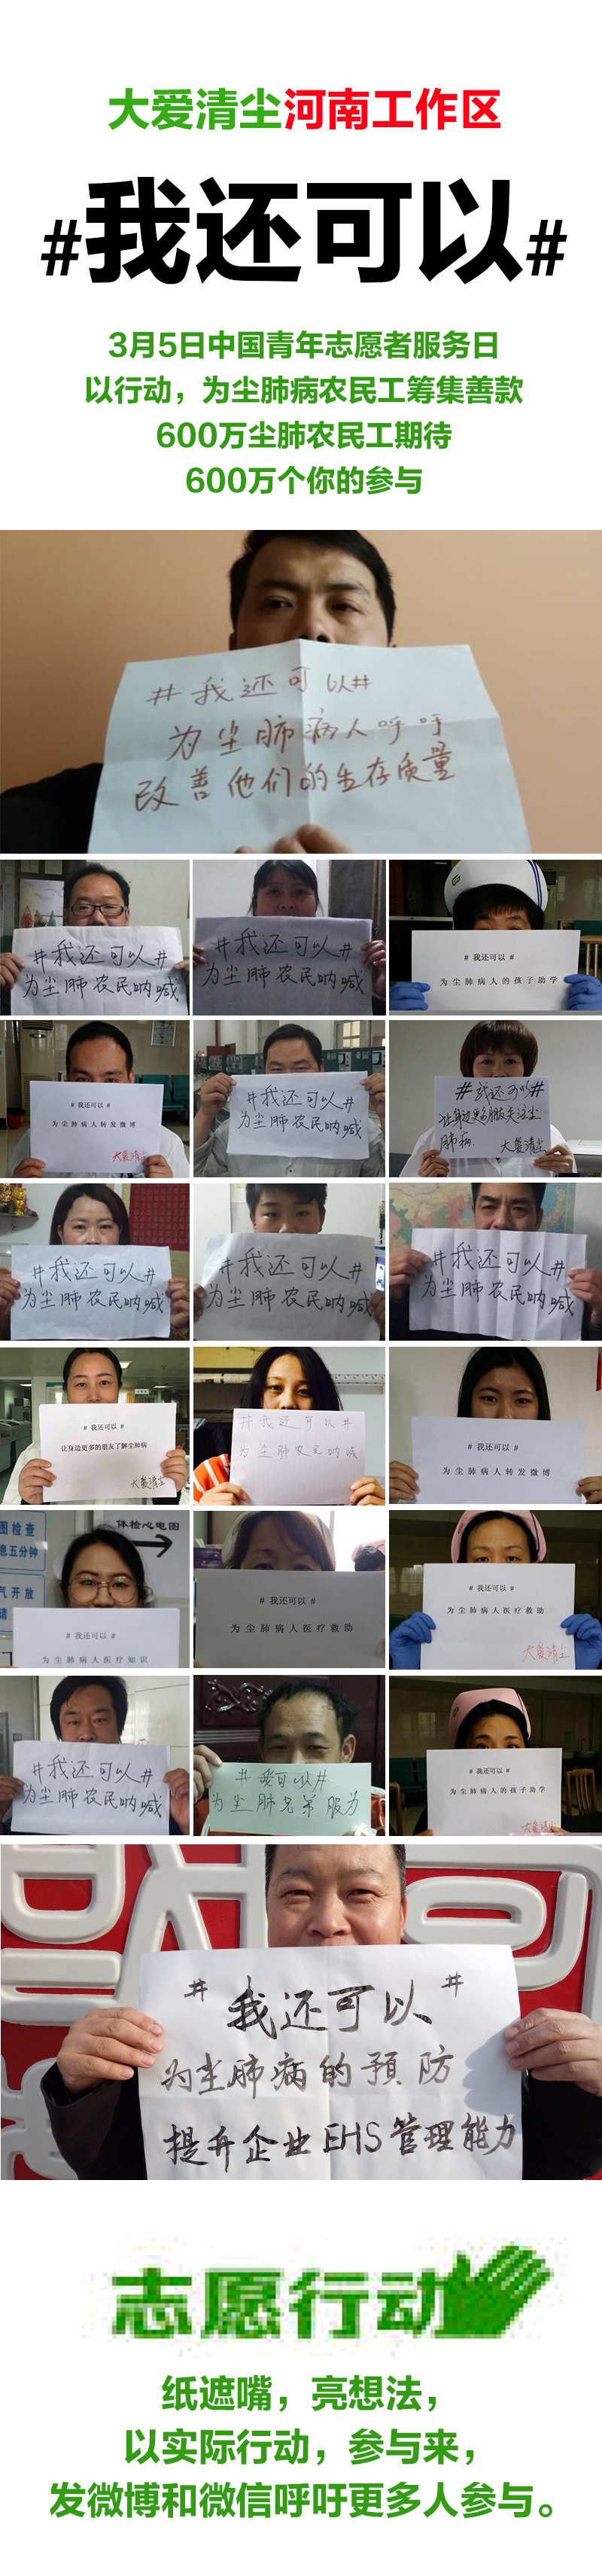 大爱清尘河南工作区
#我还可以#
3月5日中国青年志愿者服务日
以行动，为尘肺病农民工筹集善款
600万尘肺农民工期待
600万个你的参与
#我还可以#
为尘肺病人呼吁
改善他们的生存质量
#我还可以#
为尘肺农民呐喊
#我还可以#
为尘肺农民呐喊
# 我还可以 #
为尘肺病人的孩子助学
# 我还可以 #
为尘肺病人转发微博
大爱清尘
#我还可以#
为尘肺农民呐喊
#我还可以#
让身边更多朋友关注尘
肺病.
大爱清尘
#我还可以#
为尘肺农民呐喊
#我还可以#
为尘肺农民呐喊
#我还可以#
为尘肺农民呐喊
# 我还可以 #
让身边更多的朋友了解尘肺病
大爱清尘
#我还可以#
为尘肺农民呐喊
# 我还可以 #
为尘肺病人转发微博
图检查
息五分钟
气开放
请
体检心电图
# 我还可以 #
为尘肺病人医疗知识
# 我还可以 #
为尘肺病人医疗救助
# 我还可以 #
为尘肺病人医疗救助
大爱清尘
#我还可以#
为尘肺农民呐喊
#我可以#
为尘肺兄弟服务
# 我还可以 #
为尘肺病人的孩子助学
大爱清
#我还可以#
为尘肺病的預防
提升企业EHS管理能力
志愿行动
纸遮嘴，亮想法，
以实际行动，参与来，
发微博和微信呼吁更多人参与。